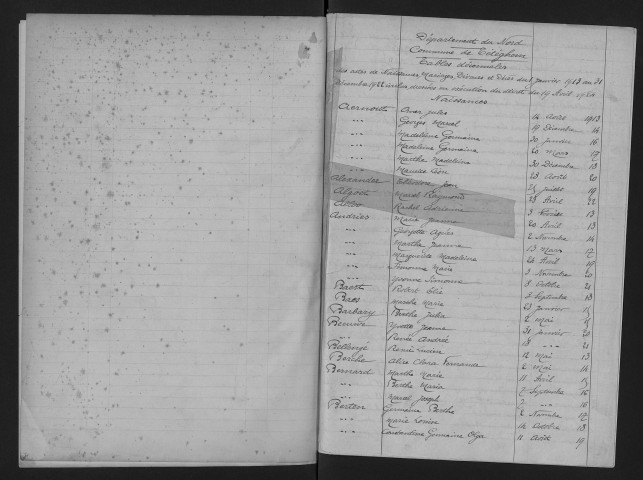 Département du Nord
Commune de Téteghem
Tables décennales
des actes de Naissances, Mariages, Divorces et Décès du 1 janvier 1913 au 31
décembre 1922 inclus dressées en exécution du décret du
Naissances
Aernouts Omer Jules 14 Août 1913
-"- Georges Marcel 19 Décembre 14
-"- Madeleine Germaine 30 Janvier 16
-"- Madeleine Germaine 20 Mars 19
-"- Marthe Madeleine 30 Décembre 18
-"- Maurice Léon 28 Août 20
Alexandre Jean 19
Marcel Raymond 28 Avril 22
Rachel Adrienne 3 Février 13
Andries Marie Jeanne 20 Avril 13
-"- Georgette Agnès 2 Novembre 14
-"- Marthe Jeanne 13 Mars 17
-"- Marguerite Madeleine 24 Avril 19
-"- Simonne Marie 3 Novembre 20
-"- Yvonne Simonne 8 Octobre 21
Baert Robert 3 Septembre 13
Baes Marie 23 Janvier 15
Barbary Berthe Julia 2 Mai 15
Yvonne Jeanne 31 Janvier 20
-"- René André 18 -"- 21
Bellengé René Lucien 12 Mai 13
Berche Alice Clara Fernande 2 Mai 14
Bernard Marthe Marie 11 Avril 15
-"- Berthe Maria 7 Septembre 16
-"- Marcel Joseph 7 -"- 16
Berten Germaine Berthe 2 Novembre 17
-"- Marie Louise 14 Octobre 18
-"- Constantine Germaine Olga 11 Août 19